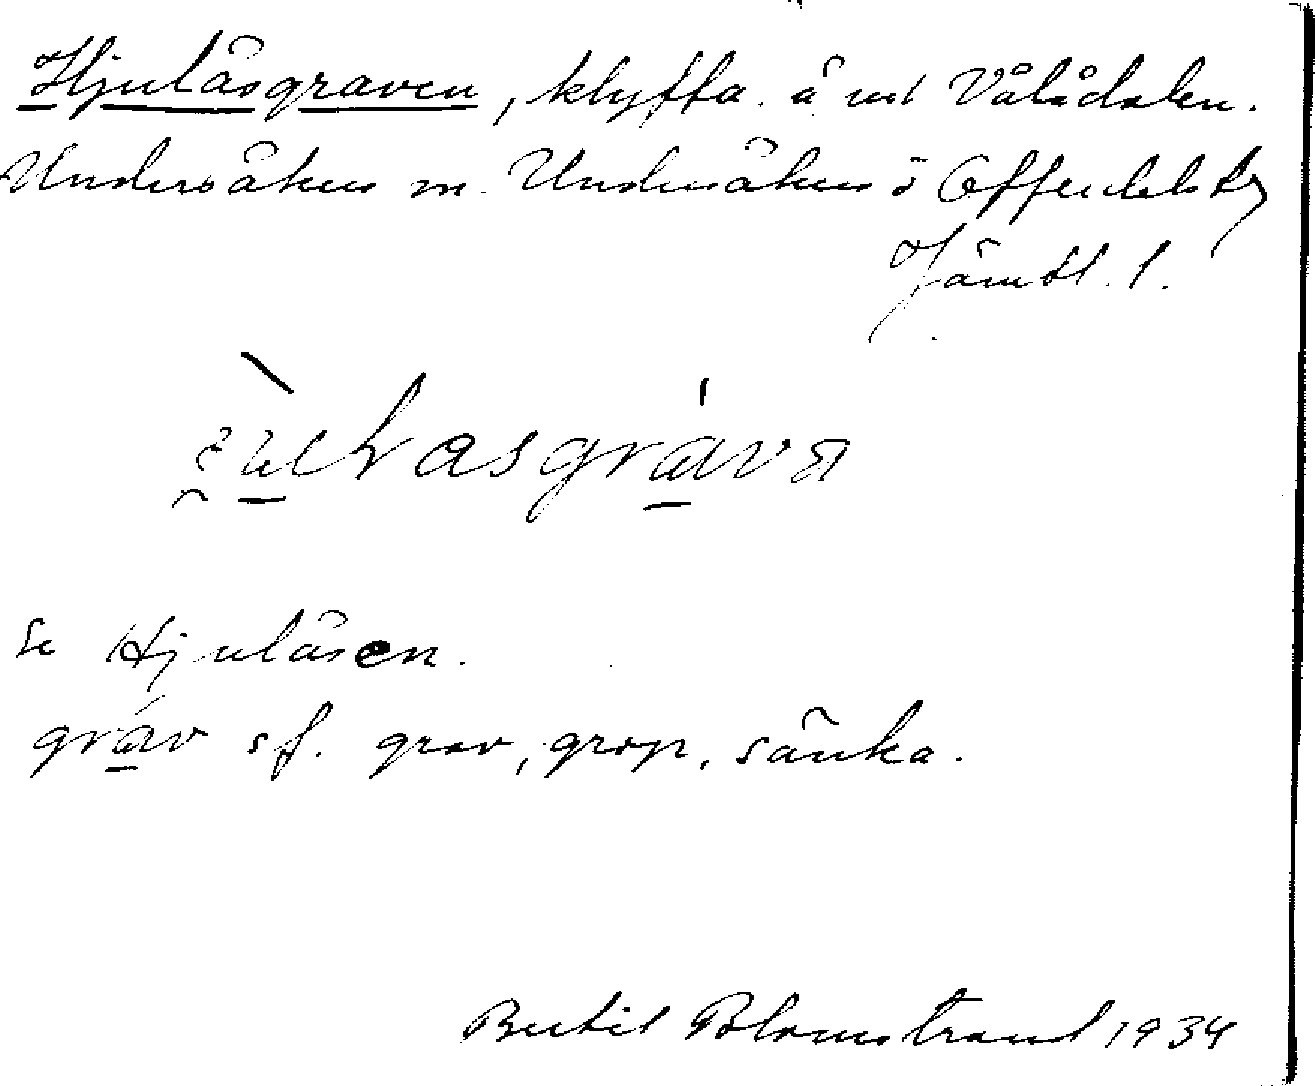 Hjulåsgraven, klyfta å ut Vålådalen.
Undersåkers sn. Undersåkers o Offerdals tg
Jämtl. l.
grava
Se Hjulåsen.
grav sf. grav, grop, sänka.
Bertil Blomstrand 1934